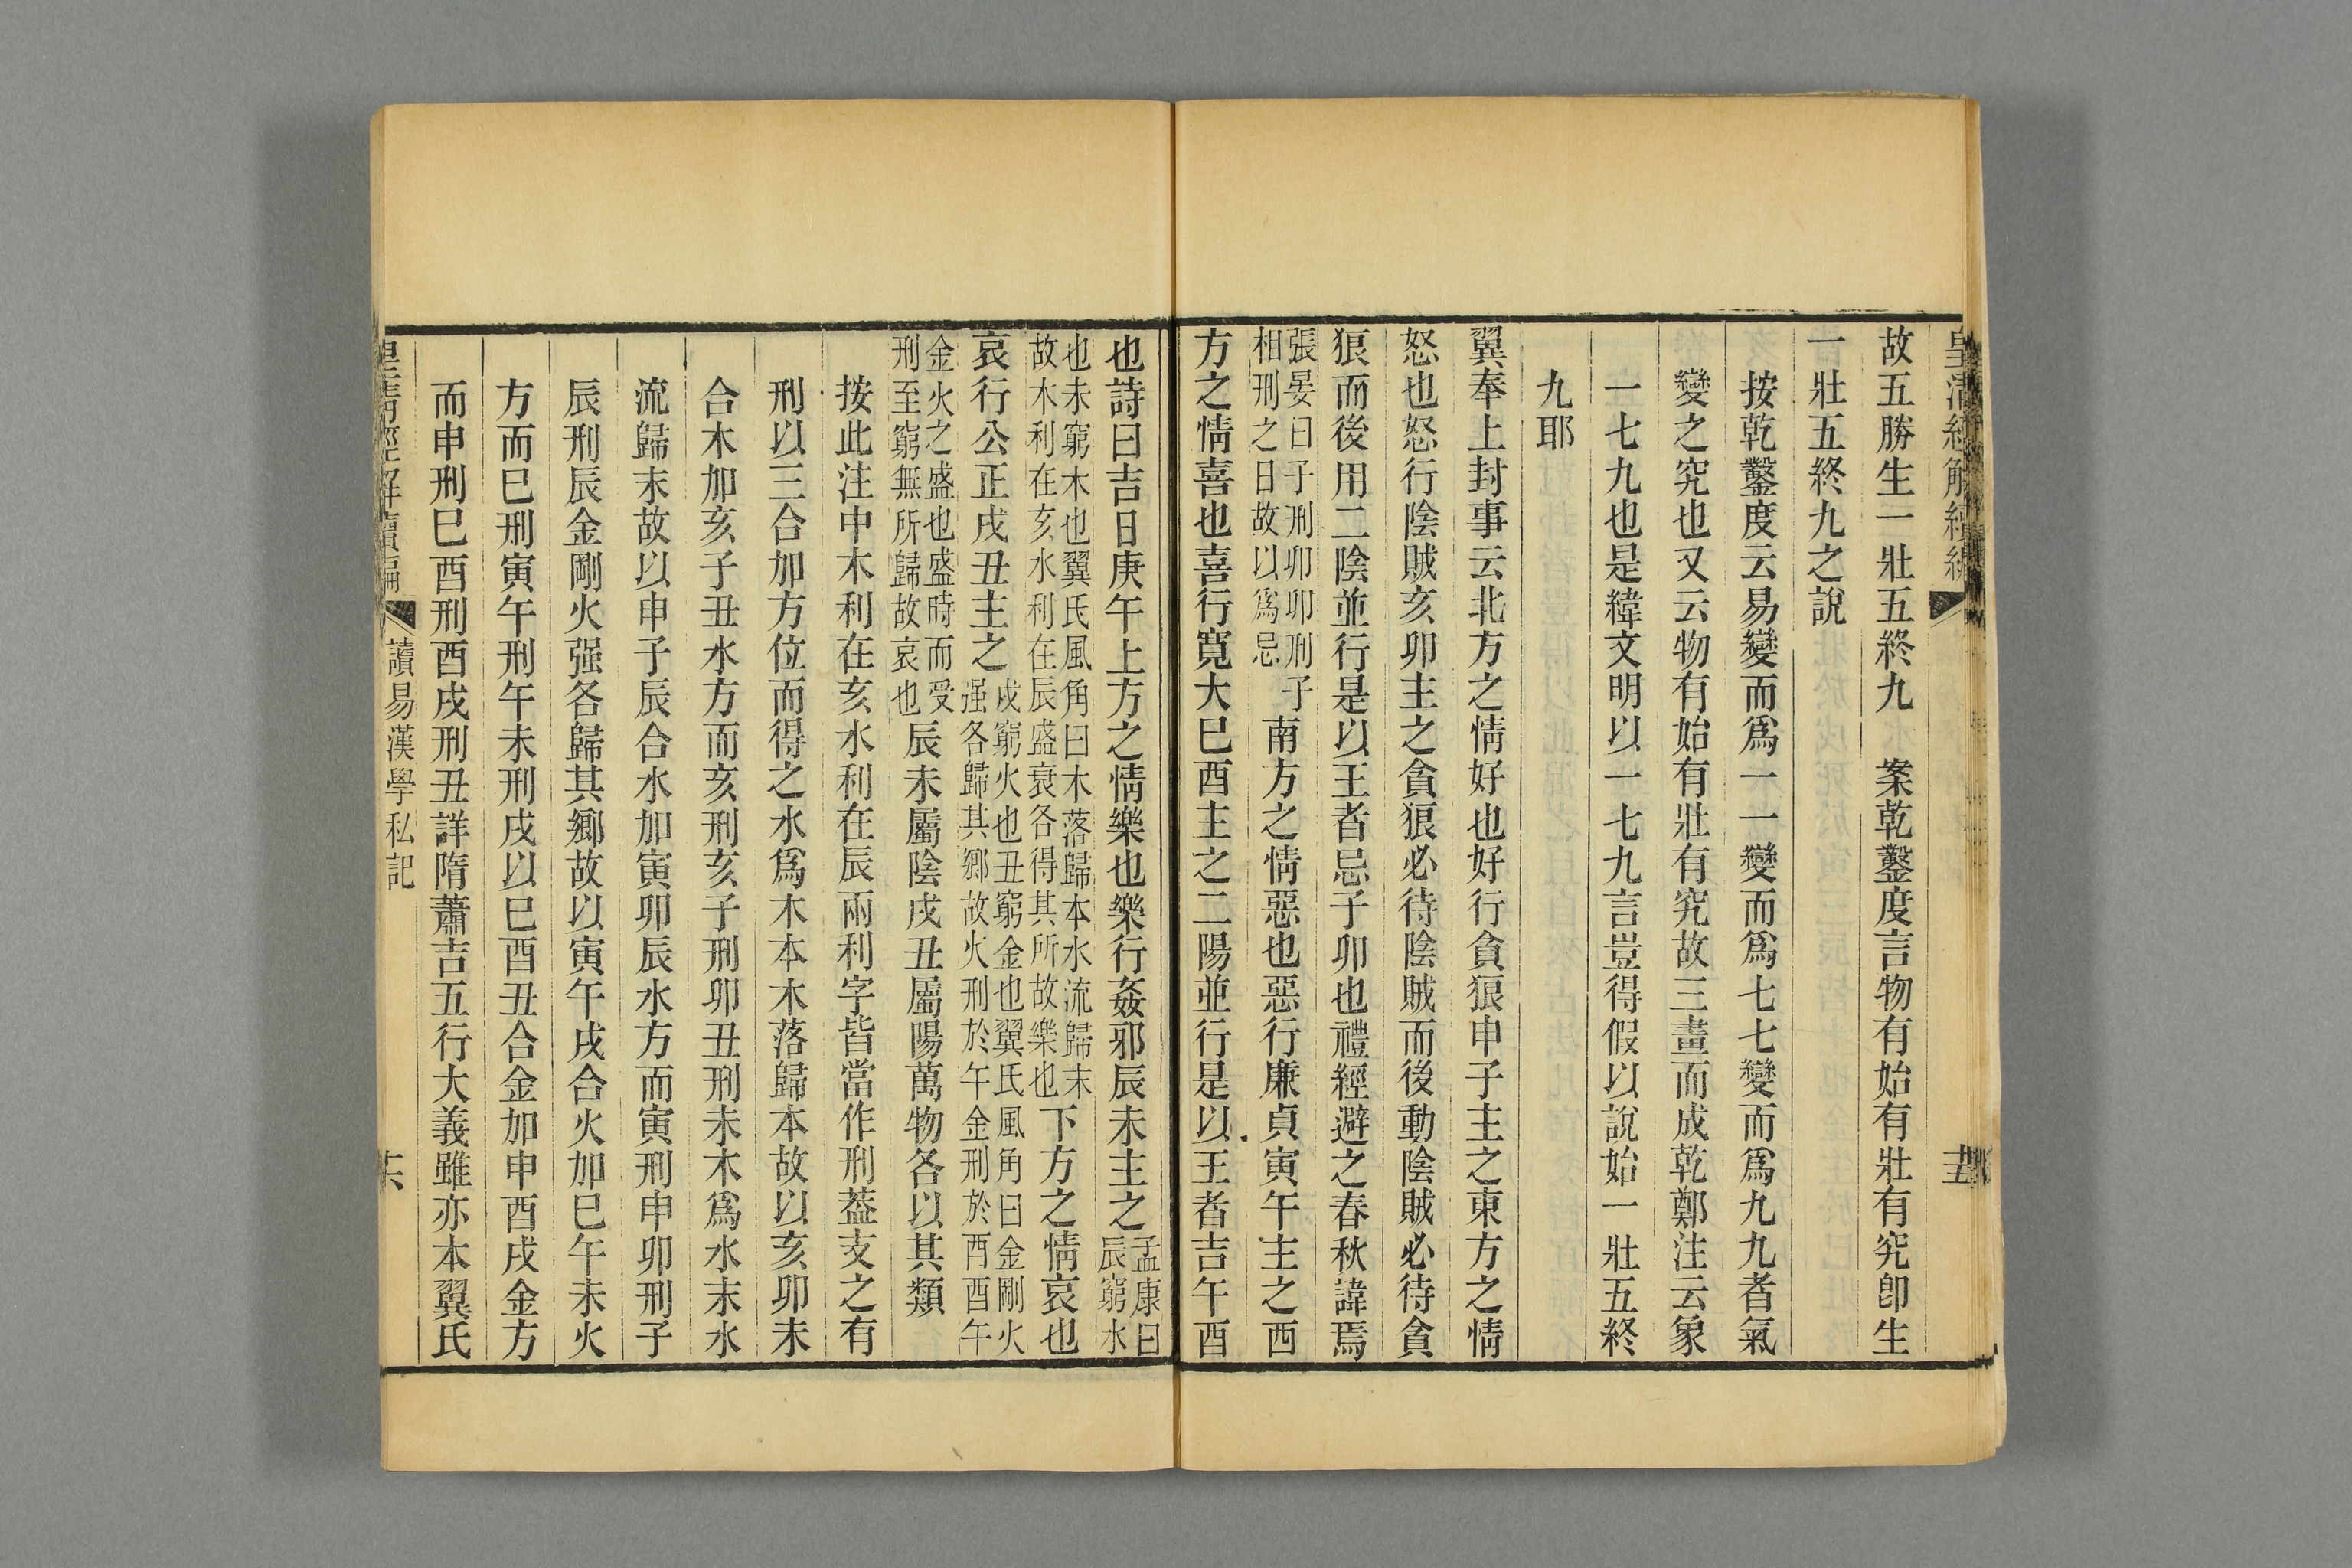 皇清經解續編
故五勝生一壯五終九 案乾鑿度言物有始有壯有究卽生
一壯五終九之說
按乾鑿度云易變而爲一一變而爲七七變而爲九九者氣
變之究也又云物有始有壯有究故三畫而成乾鄭注云象
一七九也是緯文明以一七九言豈得假以說始一壯五終
九耶
翼奉上封事云北方之情好也好行貪狼申子主之東方之情
怒也怒行陰賊亥卯主之貪狼必待陰賊而後動陰賊必待貪
狼而後用二陰並行是以王者忌子卯也禮經避之春秋諱焉
張晏曰子刑卯卯刑子
相刑之日故以爲忌
南方之情惡也惡行廉貞寅午主之西
方之情喜也喜行寬大巳酉主之二陽並行是以王者吉午酉
也詩曰吉日庚午上方之情樂也樂行姦邪辰未主之
孟康曰
辰窮水
也未窮木也翼氏風角曰木落歸本水流歸末
故木利在亥水利在辰盛衰各得其所故樂也
下方之情哀也
哀行公正戌丑主之
戌窮火也丑窮金也翼氏風角曰金剛火
强各歸其鄉故火刑於午金刑於酉酉午
金火之盛也盛時而受
刑至窮無所歸故哀也
辰未屬陰戌丑屬陽萬物各以其類
按此注中木利在亥水利在辰兩利字皆當作刑葢支之有
刑以三合加方位而得之水爲木本木落歸本故以亥卯未
合木加亥子丑水方而亥刑亥子刑卯丑刑未木爲水末水
流歸末故以申子辰合水加寅卯辰水方而寅刑申卯刑子
辰刑辰金剛火强各歸其鄉故以寅午戌合火加巳午未火
方而巳刑寅午刑午未刑戌以巳酉丑合金加申酉戌金方
而申刑巳酉刑酉戌刑丑詳隋蕭吉五行大義雖亦本翼氏
皇清經解續編
讀易漢學私記